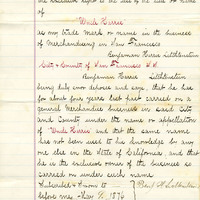 the exclusive right to the use of the name
of
"Uncle Harris"
as my trade mark or name in the business
of Merchandising in San Francisco
Benjamin Harris Lichtenstein
City & County of San Francisco S.S.
Benjamin Harris Lichtenstein
being duly sworn deposes and says, that he has
for about four years last past carried on a
general Merchandise business in said City
and County under the name or appellation
of "Uncle Harris" and that the same name
has not been used to his knowledge by any
one else in the State of California and that
he is the exclusive owner of the business
carried on under such name
Subscribed & Sworn to
before me May 1876